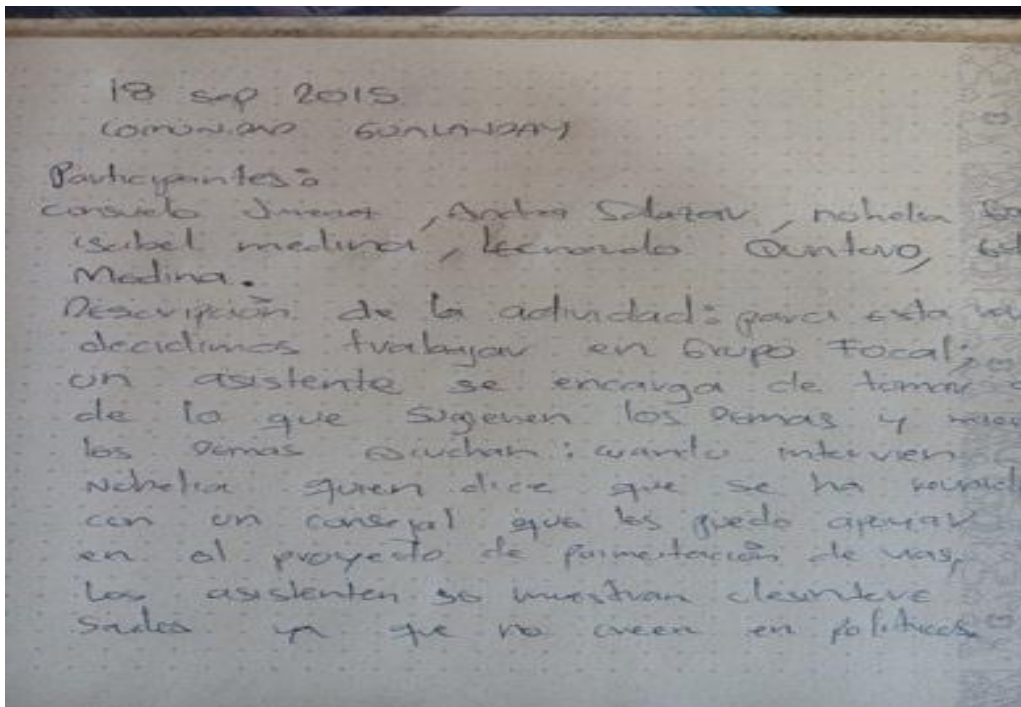 18 sep 2015
COMUNIDAD GUALANDAY
Participantes:
consuelo Jimenez, Andrea Salazar, nohelia
isabel medina, Leonardo Quintero,
Medina.
Descripción de la actividad: para esta
decidimos trabajar en Grupo Focal;
un asistente se encarga de tomar
de lo que sugieren los Demas y
los Demas escuchan; cuando intervien
Nohelia quien dice que se ha reunid
con un consejal que les puede apoyar
en el proyecto de pavimentación de vias,
Los asistenten se muestran desintere
sados ya que no creen en politicos